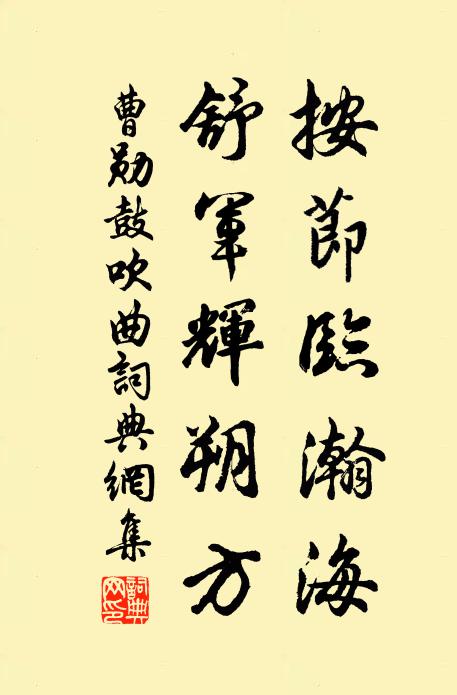 按節臨瀚海
舒軍輝朔方
曹勛鼓吹曲詞典網集
詞典網印